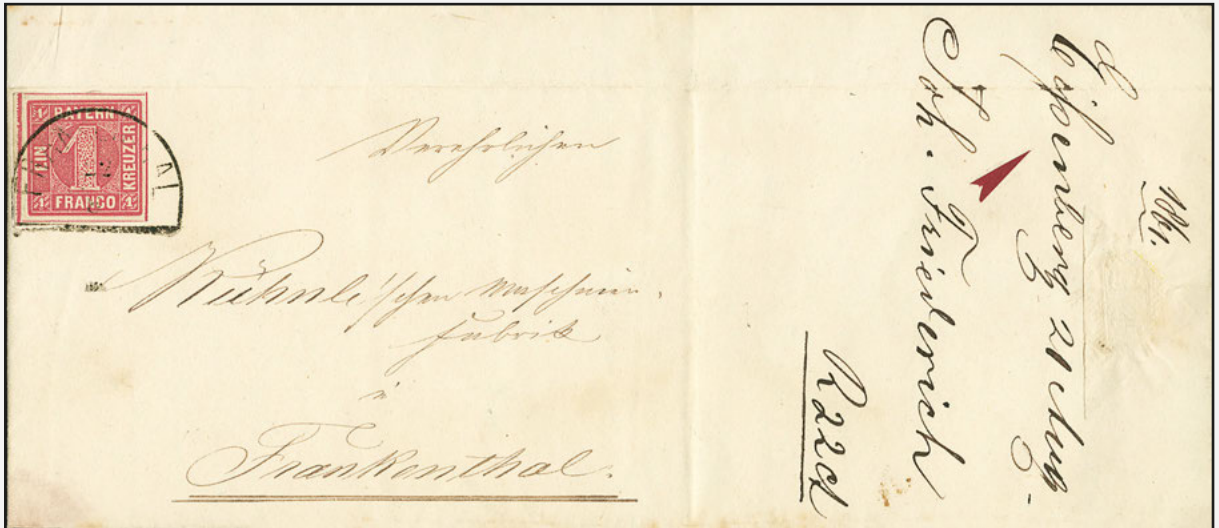 BAYERN
EIN
KREUZER
1
FRANCO
Verehrlichen
Kühnle'schen Maschinen-
fabrik
in
Frankenthal.
1861.
Eisenberg 21 Aug
Joh. Friederich